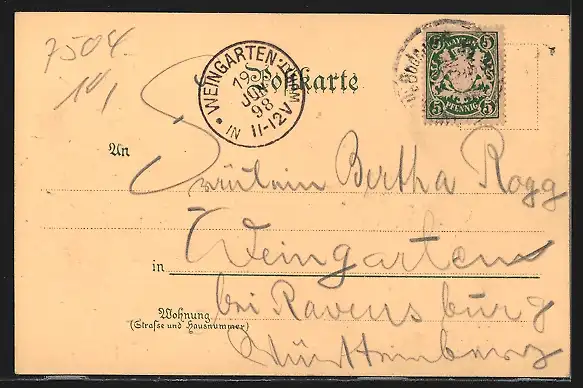 7504
10/1
Postkarte
WEINGARTEN
19
JUN
98
IN 11-12V
BAYERN
5 5
5 PFENNIG 5
An
Fräulein Bertha Rogg
in Weingarten
Wohnung
(Strasse und Hausnummer)
bei Ravensburg
Württemberg